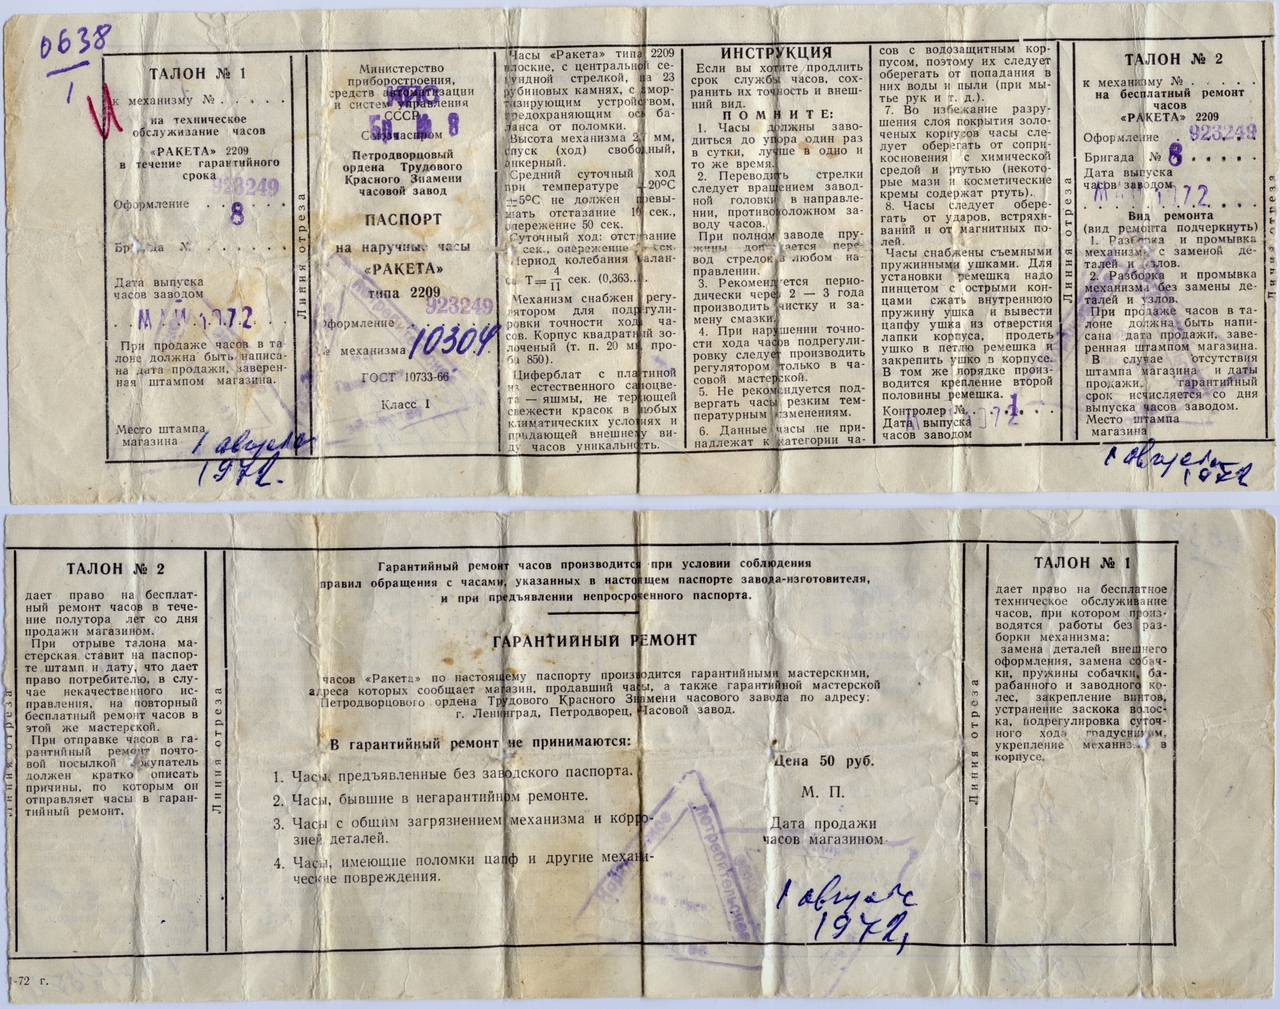 0638
1
ТАЛОН № 1
к механизму № . . . . .
на техническое
обслуживание часов
«РАКЕТА» 2209
в течение гарантийного
срока
923249
Оформление . . . . .
8
Бригада № . . . . .
Дата выпуска
часов заводом
МАЙ 1972
При продаже часов в та-
лоне должна быть написа-
на дата продажи, заверен-
ная штампом магазина.
Место штампа
магазина
1 августа
1972.
Линия отреза
Министерство
приборостроения,
средств автоматизации
и систем управления
СССР
8
Союзчаспром
Петродворцовый
ордена Трудового
Красного Знамени
часовой завод
ПАСПОРТ
на наручные часы
«РАКЕТА»
типа 2209
923249
Оформление
№ механизма
ГОСТ 10733-66
Класс 1
Часы «Ракета» типа 2209
плоские, с центральной се-
кундной стрелкой, на 23
рубиновых камнях, с амор-
тизирующим устройством,
предохраняющим ось ба-
ланса от поломки.
Высота механизма 2,7 мм,
спуск (ход) свободный,
анкерный.
Средний суточный ход
при температуре +20°С
±5°С не должен превы-
шать отставание 10 сек.,
опережение 50 сек.
Суточный ход: отставание
сек., опережение сек.
Период колебания балан-
са T= 4/11 сек. (0,363...).
Механизм снабжен регу-
лятором для подрегули-
ровки точности хода ча-
сов. Корпус квадратный зо-
лоченый (т. п. 20 мк, про-
ба 850).
Циферблат с платиной
из естественного самоцве-
та — яшмы, не теряющей
свежести красок в любых
климатических условиях и
придающей внешнему ви-
ду часов уникальность.
ИНСТРУКЦИЯ
Если вы хотите продлить
срок службы часов, сох-
ранить их точность и внеш-
ний вид.
ПОМНИТЕ:
1. Часы должны заво-
диться до упора один раз
в сутки, лучше в одно и
то же время.
2. Переводить стрелки
следует вращением завод-
ной головки в направле-
нии, противоположном за-
воду часов.
При полном заводе пру-
жины допускается пере-
вод стрелок в любом на-
правлении.
3. Рекомендуется перио-
дически через 2 — 3 года
производить чистку и за-
мену смазки.
4. При нарушении точно-
сти хода часов подрегули-
ровку следует производить
регулятором только в ча-
совой мастерской.
5. Не рекомендуется под-
вергать часы резким тем-
пературным изменениям.
6. Данные часы не при-
надлежат к категории ча-
сов с водозащитным кор-
пусом, поэтому их следует
оберегать от попадания в
них воды и пыли (при мы-
тье рук и т. д.).
7. Во избежание разру-
шения слоя покрытия золо-
ченых корпусов часы сле-
дует оберегать от сопри-
косновения с химической
средой и ртутью (некото-
рые мази и косметические
кремы содержат ртуть).
8. Часы следует обере-
гать от ударов, встряхи-
ваний и от магнитных по-
лей.
Часы снабжены съемными
пружинными ушками. Для
установки ремешка надо
пинцетом с острыми кон-
цами сжать внутреннюю
пружину ушка и вывести
цапфу ушка из отверстия
лапки корпуса, продеть
ушко в петлю ремешка и
закрепить ушко в корпусе.
В том же порядке произ-
водится крепление второй
половины ремешка.
Контролер № . . 1 . . .
Дата выпуска
часов заводом
Линия отреза
ТАЛОН № 2
к механизму № . . . . .
на бесплатный ремонт
часов
«РАКЕТА» 2209
Оформление 923249
Бригада № 8 . . . . .
Дата выпуска
часов заводом
МАЙ 1972
Вид ремонта
(вид ремонта подчеркнуть)
1. Разборка и промывка
механизма с заменой де-
талей и узлов.
2. Разборка и промывка
механизма без замены де-
талей и узлов.
При продаже часов в та-
лоне должна быть напи-
сана дата продажи, заверен-
ная штампом магазина.
В случае отсутствия
штампа магазина и даты
продажи, гарантийный
срок исчисляется со дня
выпуска часов заводом.
Место штампа
магазина
1 августа
1972
Линия отреза
ТАЛОН № 2
дает право на бесплат-
ный ремонт часов в тече-
ние полутора лет со дня
продажи магазином.
При отрыве талона ма-
стерская ставит на паспор-
те штамп и дату, что дает
право потребителю, в слу-
чае некачественного ис-
правления, на повторный
бесплатный ремонт часов в
этой же мастерской.
При отправке часов в га-
рантийный ремонт почто-
вой посылкой покупатель
должен кратко описать
причины, по которым он
отправляет часы в гаран-
тийный ремонт.
-72 г.
Линия отреза
Гарантийный ремонт часов производится при условии соблюдения
правил обращения с часами, указанных в настоящем паспорте завода-изготовителя,
и при предъявлении непросроченного паспорта.
ГАРАНТИЙНЫЙ РЕМОНТ
часов «Ракета» по настоящему паспорту производится гарантийными мастерскими,
адреса которых сообщает магазин, продавший часы, а также гарантийной мастерской
Петродворцового ордена Трудового Красного Знамени часового завода по адресу:
г. Ленинград, Петродворец, Часовой завод.
В гарантийный ремонт не принимаются:
1. Часы, предъявленные без заводского паспорта.
2. Часы, бывшие в негарантийном ремонте.
3. Часы с общим загрязнением механизма и корро-
зией деталей.
4. Часы, имеющие поломки цапф и другие механи-
ческие повреждения.
Цена 50 руб.
М. П.
Дата продажи
часов магазином
1 августа
1972,
Потребительское
Линия отреза
ТАЛОН № 1
дает право на бесплатное
техническое обслуживание
часов, при котором произ-
водятся работы без раз-
борки механизма:
замена деталей внешнего
оформления, замена собач-
ки, пружины собачки, ба-
рабанного и заводного ко-
лес, закрепление винтов,
устранение заскока волос-
ка, подрегулировка суточ-
ного хода градусником,
укрепление механизма в
корпусе.